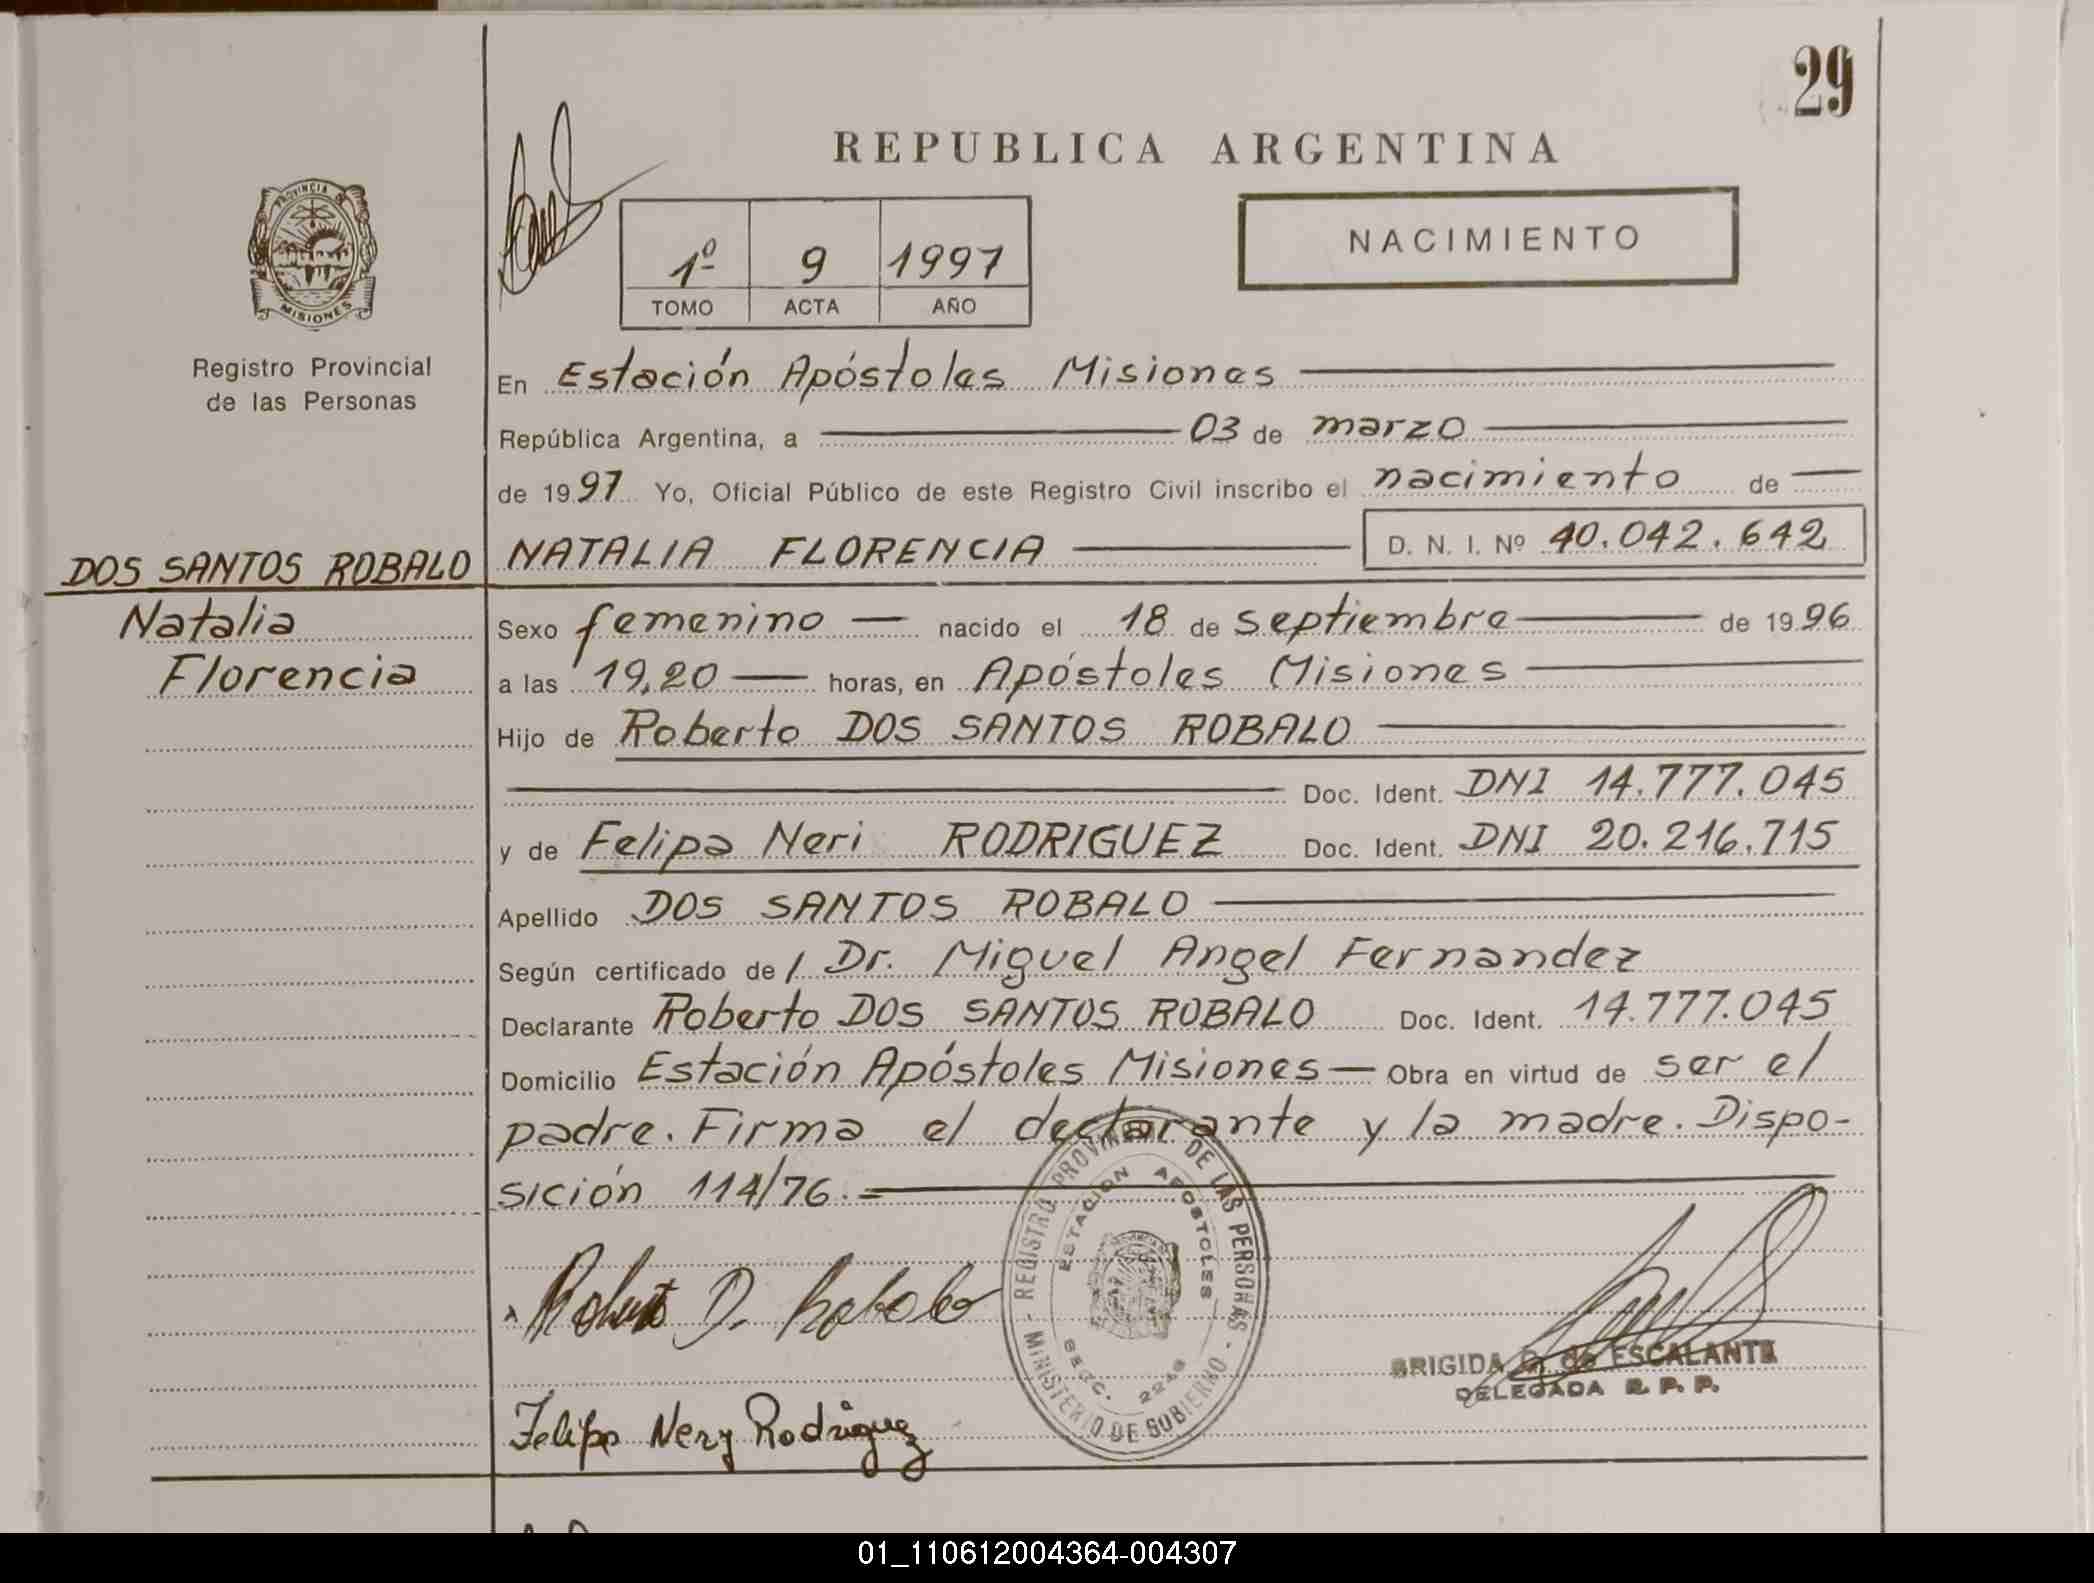 29
REPUBLICA ARGENTINA
PROVINCIA
MISIONES
1º 9 1997
TOMO ACTA AÑO
NACIMIENTO
Registro Provincial
de las Personas
En Estación Apóstoles Misiones
República Argentina, a 03 de marzo
de 1997 Yo, Oficial Público de este Registro Civil inscribo el nacimiento de
DOS SANTOS ROBALO NATALIA FLORENCIA D. N. I. Nº 40.042.642
Natalia
Florencia
Sexo femenino nacido el 18 de septiembre de 1996
a las 19,20 horas, en Apóstoles Misiones
Hijo de Roberto DOS SANTOS ROBALO
Doc. Ident. DNI 14.777.045
y de Felipa Neri RODRIGUEZ Doc. Ident. DNI 20.216.715
Apellido DOS SANTOS ROBALO
Según certificado de / Dr. Miguel Angel Fernandez
Declarante Roberto DOS SANTOS ROBALO Doc. Ident. 14.777.045
Domicilio Estación Apóstoles Misiones — Obra en virtud de ser el
padre. Firma el declarante y la madre. Dispo-
sición 114/76.=
REGISTRO PROVINCIAL DE LAS PERSONAS - MINISTERIO DE GOBIERNO -
ESTACION APOSTOLES
SECC. 2246
Roberto D. Robalo
BRIGIDA G. de ESCALANTE
DELEGADA R. P. P.
Felipa Nery Rodriguez
01_110612004364-004307